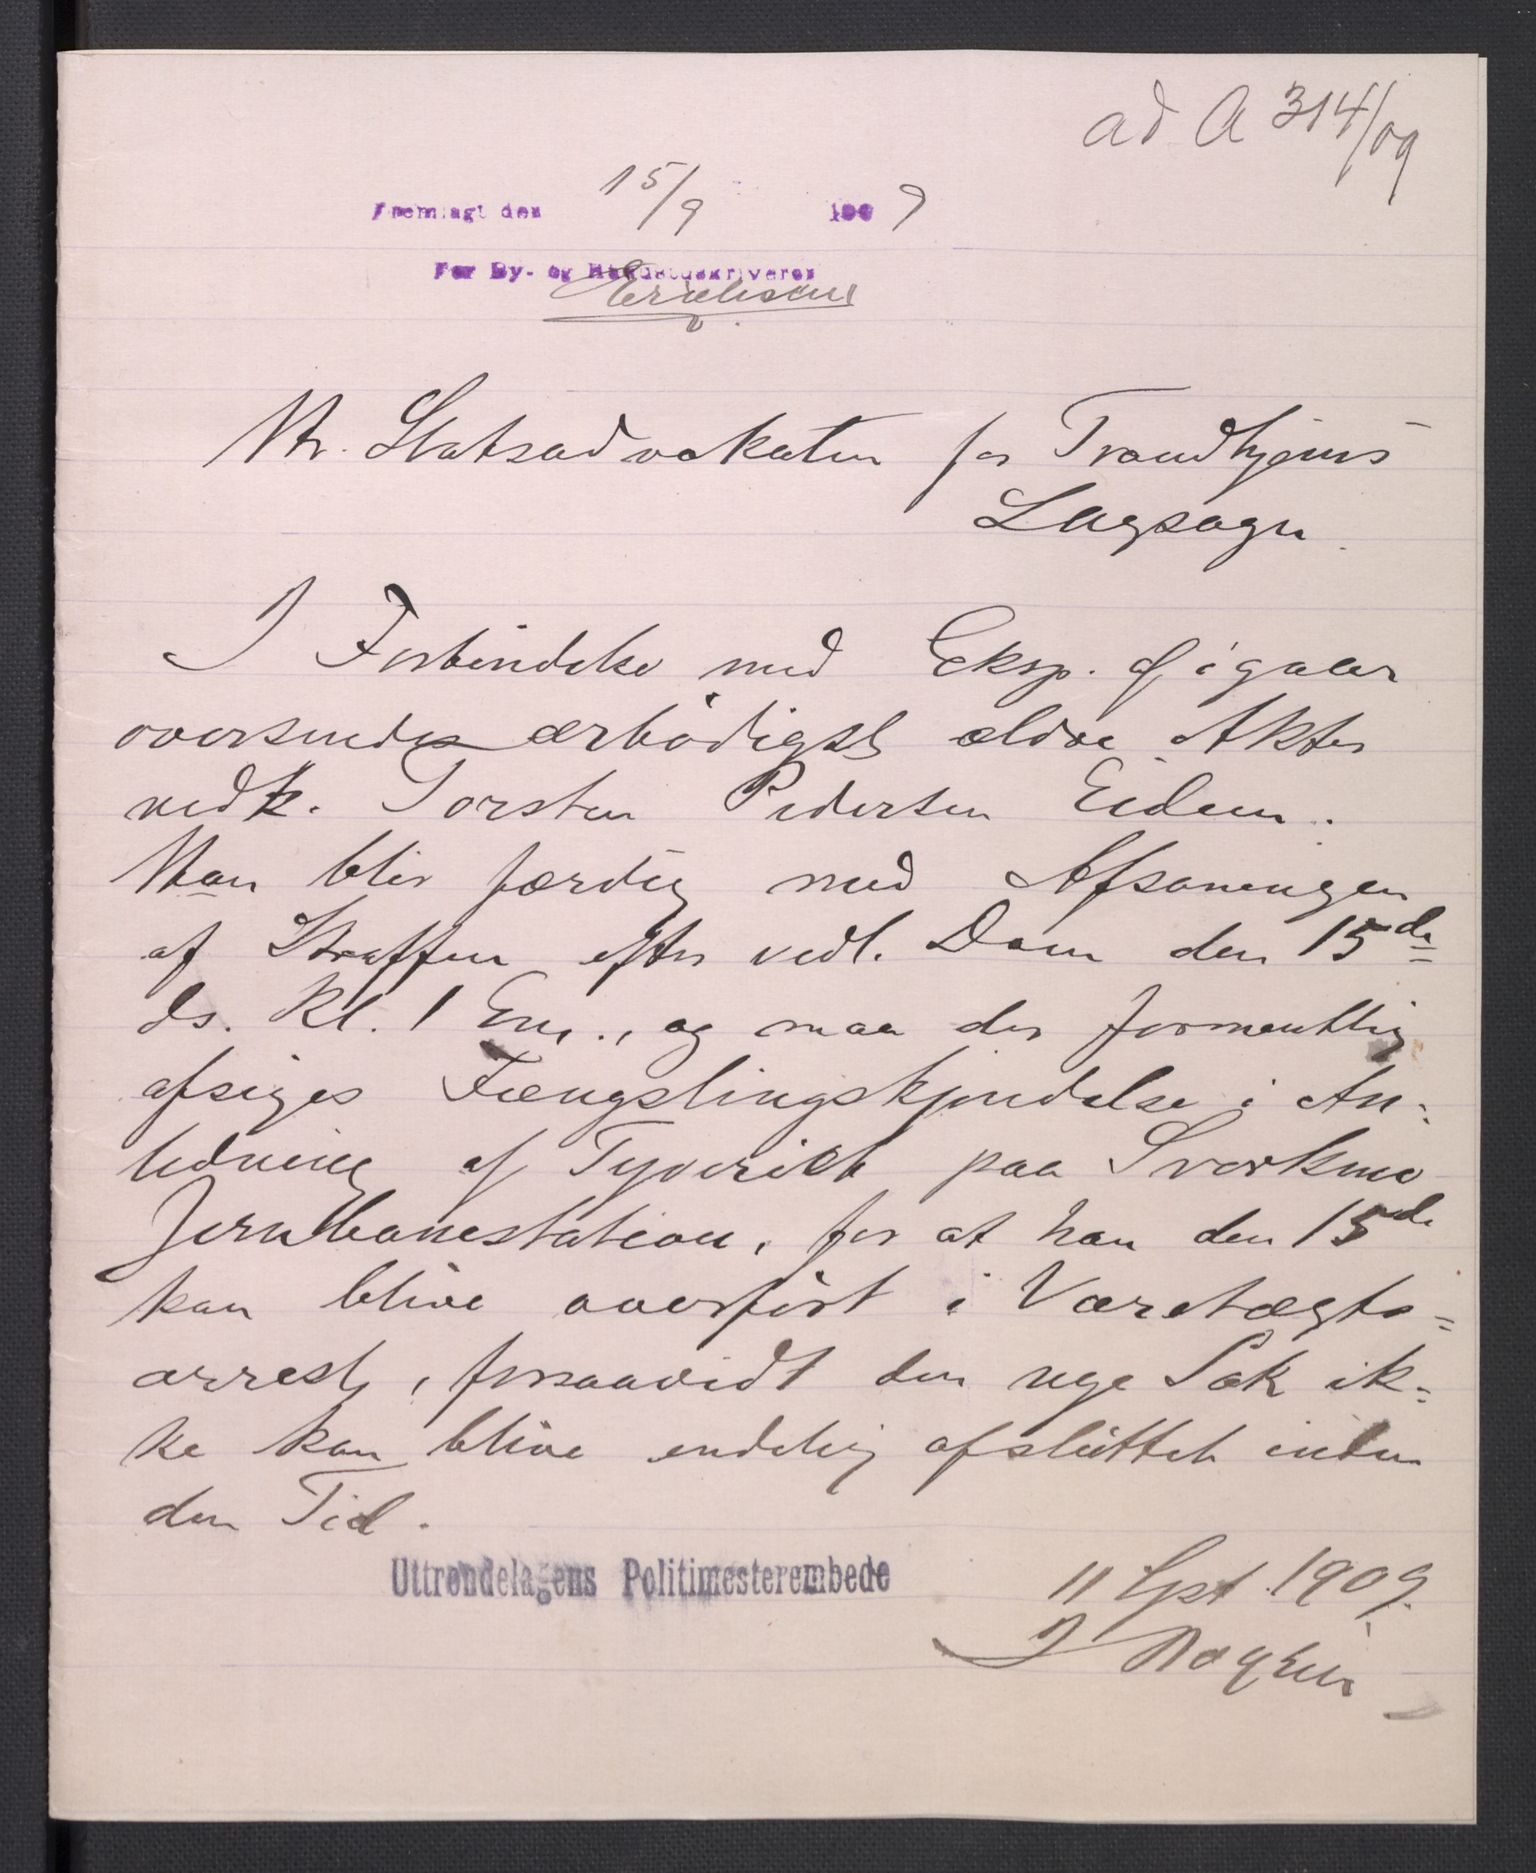 ad A 314/09
Fremlagt den 15/9 1909
For By- og Herredsskriveren
Hr. Statsadvokaten for Trondhjems
Lagsogn.
I Forbindelse med Eksp. af igaar
oversendes ærbødigst ældre Akter
vedk. Torsten Pedersen Eidem.
Han blir færdig med Afsoningen
af Straffen efter vedl. Dom den 15de
ds. Kl. 1 Em., og maa der formentlig
afsiges Fængslingskjendelse i An-
ledning af Tyveriet paa Svorkmo
Jernbanestation, for at han den 15de
kan blive overført i Varetægts=
arrest, forsaavidt den nye Sak ik-
ke kan blive endelig afsluttet inden
den Tid.
Uttrøndelagens Politimesterembede
11 Spt. 1909.